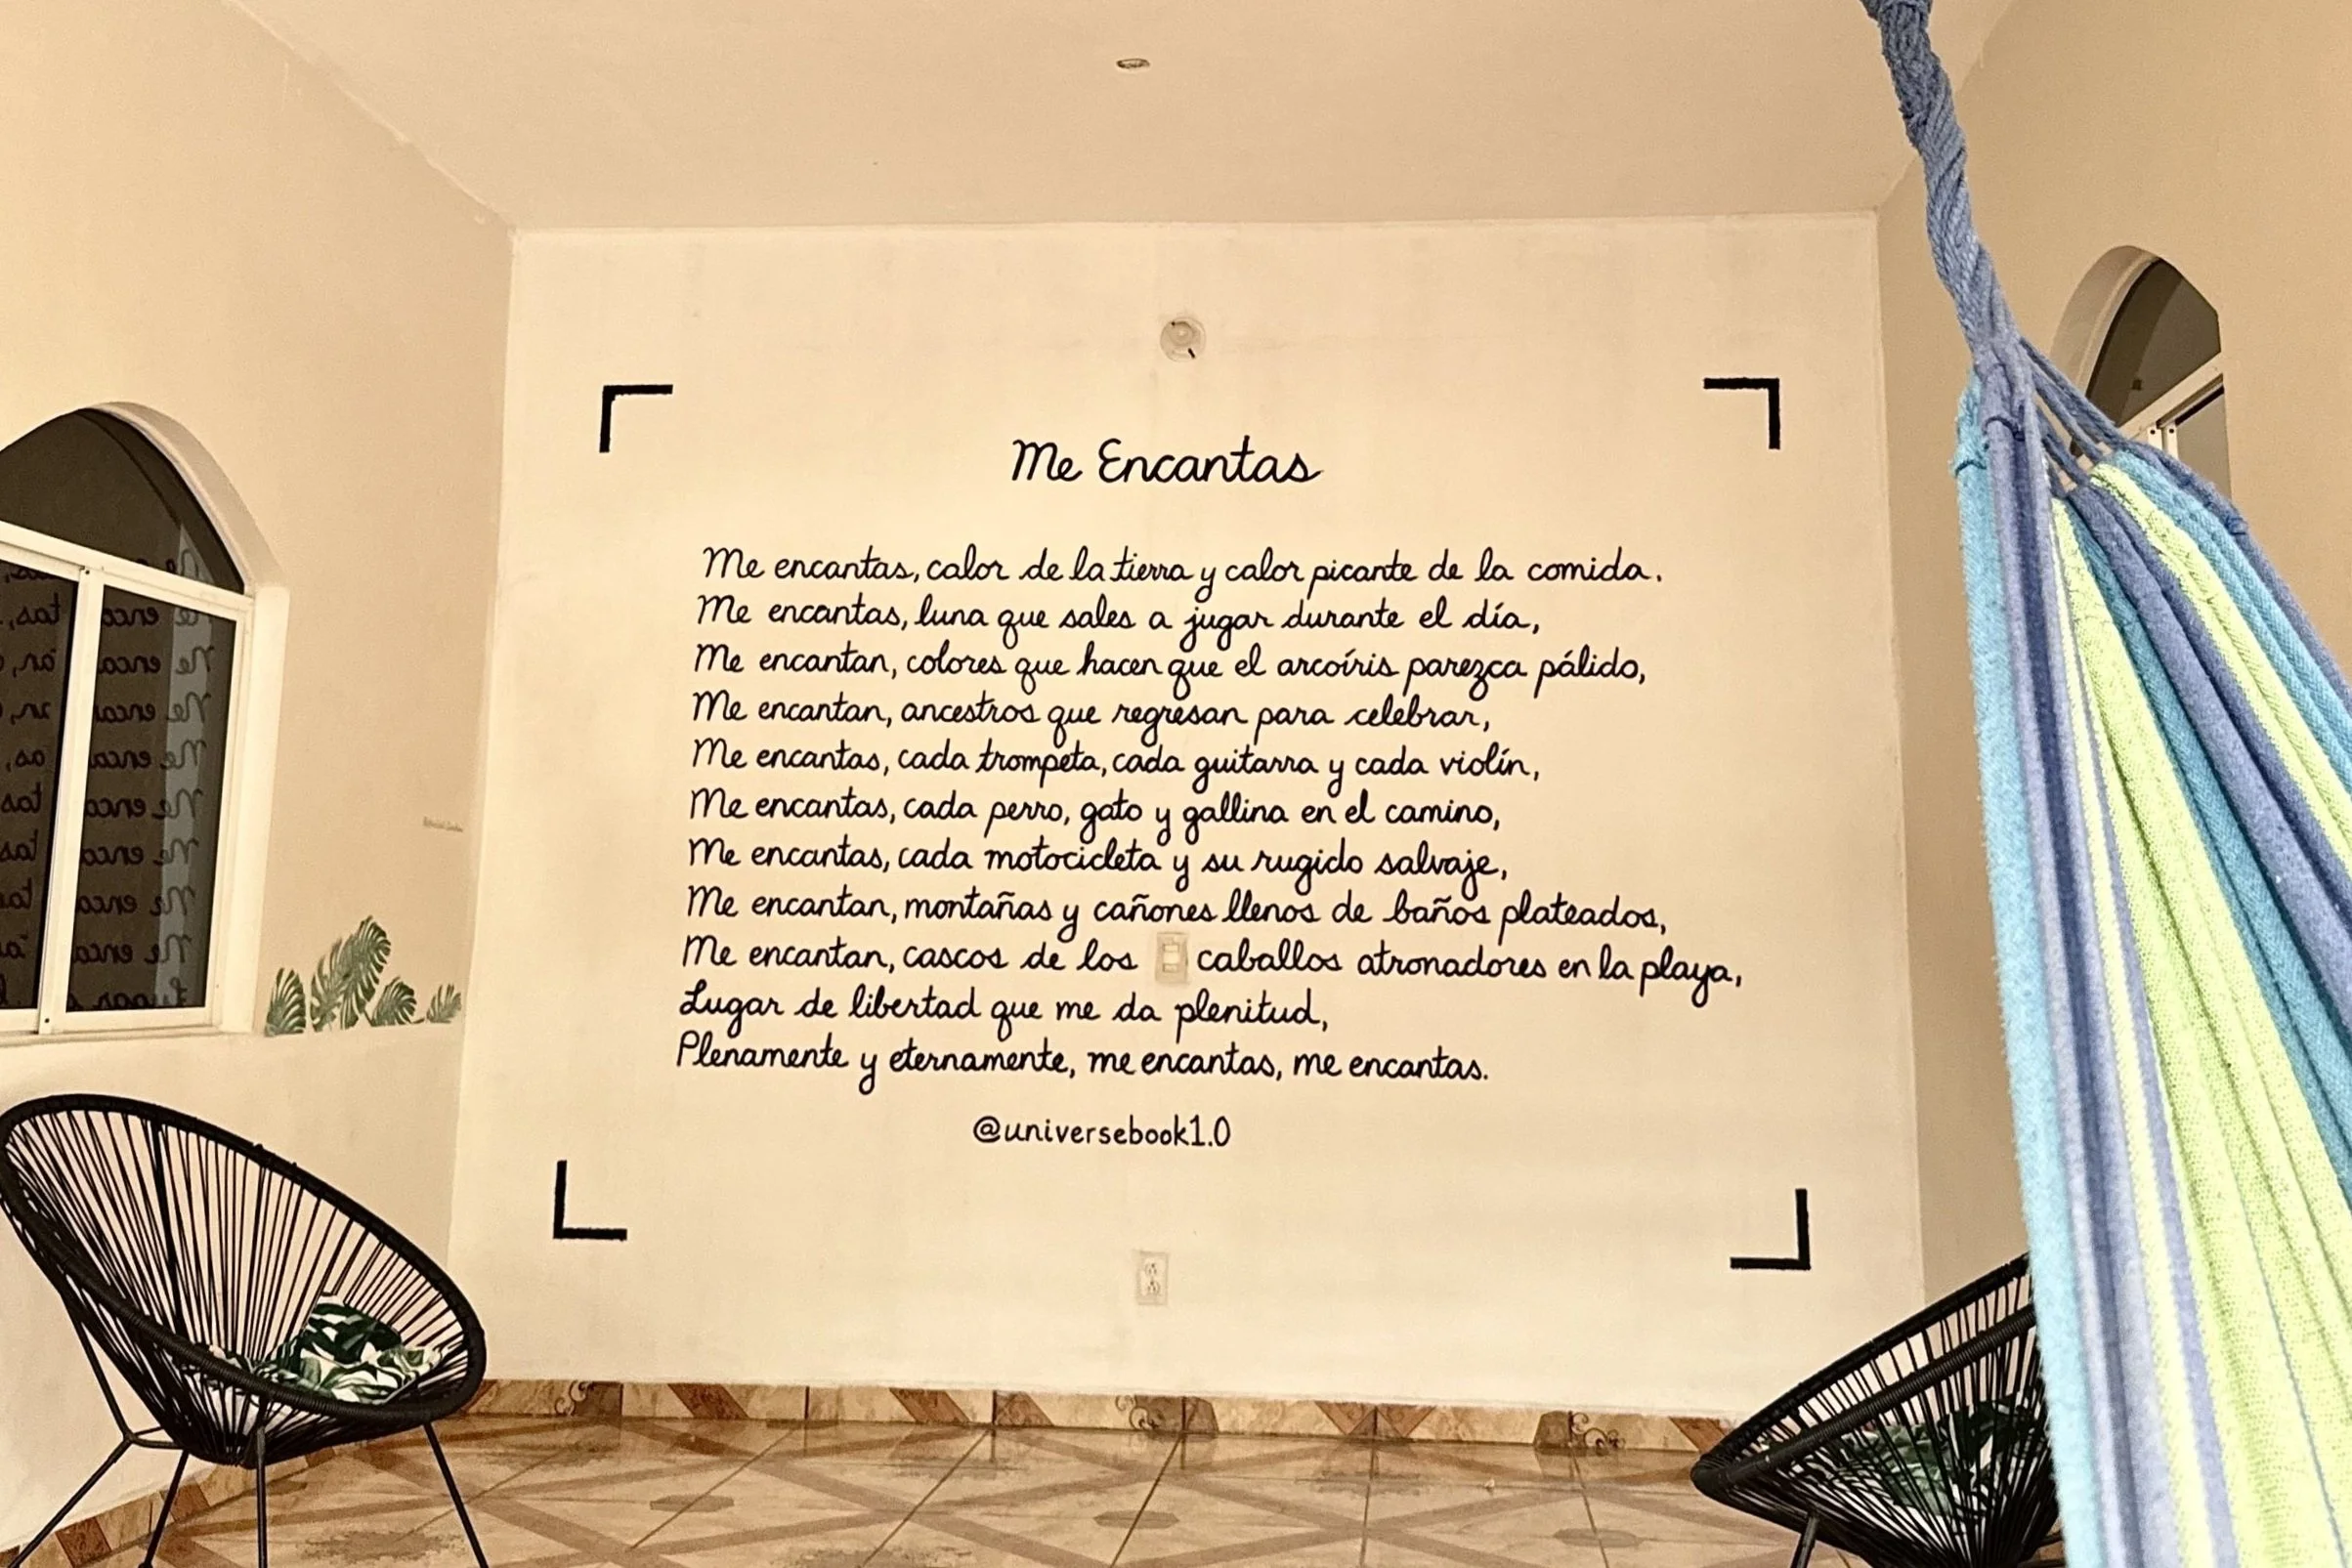 Me Encantas
Me encantas, calor de la tierra y calor picante de la comida.
Me encantas, luna que sales a jugar durante el día,
Me encantan, colores que hacen que el arcoíris parezca pálido,
Me encantan, ancestros que regresan para celebrar,
Me encantas, cada trompeta, cada guitarra y cada violín,
Me encantas, cada perro, gato y gallina en el camino,
Me encantas, cada motocicleta y su rugido salvaje,
Me encantan, montañas y cañones llenos de baños plateados,
Me encantan, cascos de los caballos atronadores en la playa,
Lugar de libertad que me da plenitud,
Plenamente y eternamente, me encantas, me encantas.
@universebook1.0